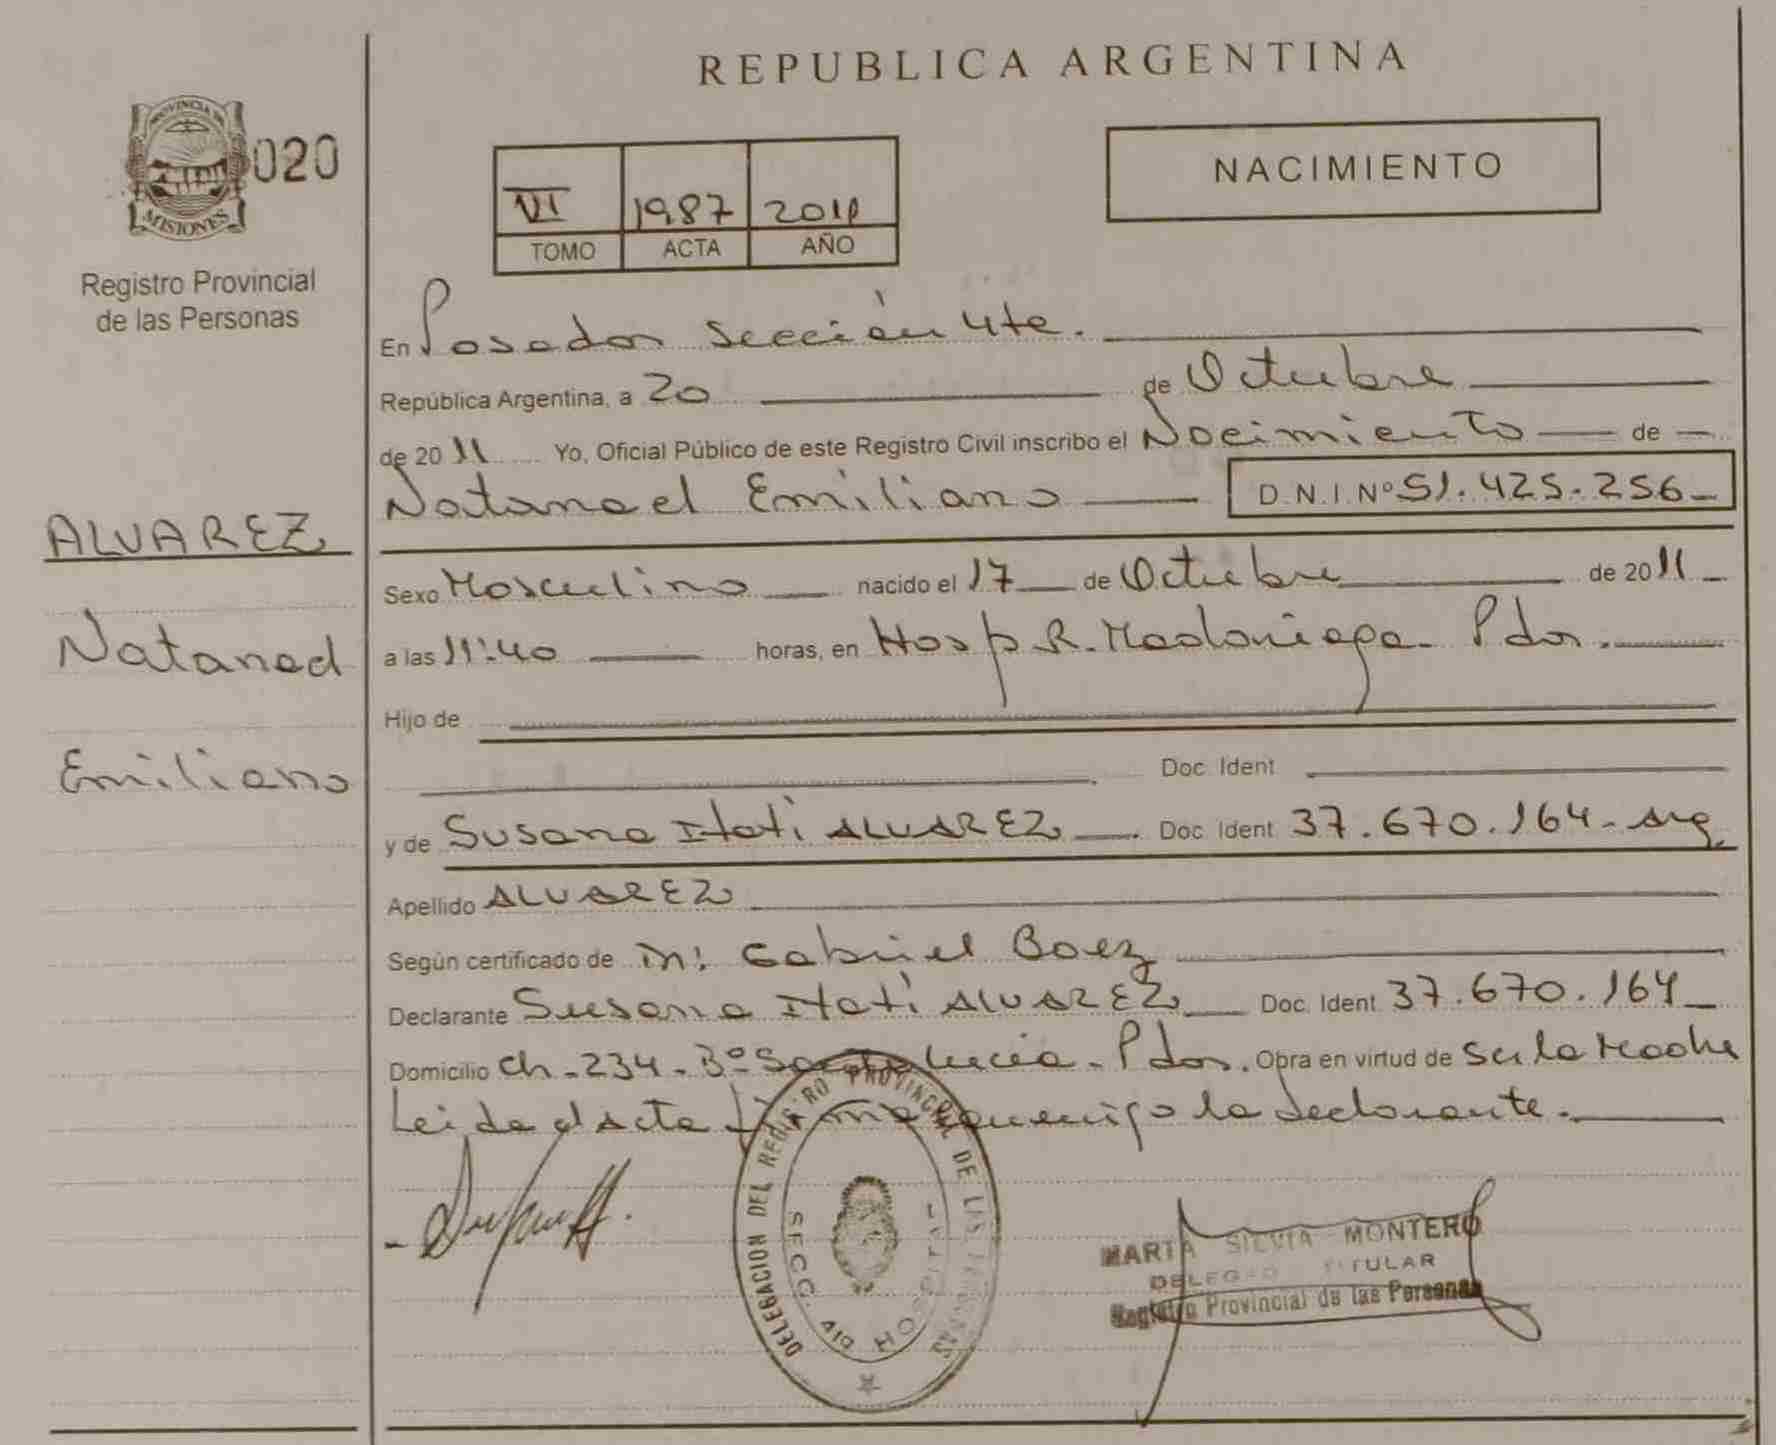 REPUBLICA ARGENTINA
PROVINCIA DE
MISIONES
020
Registro Provincial
de las Personas
VI 1987 2011
TOMO ACTA AÑO
NACIMIENTO
En Posadas Sección 4ta.
República Argentina, a 20 de Octubre
de 2011 Yo, Oficial Público de este Registro Civil inscribo el Nacimiento de
Natanael Emiliano D.N.I. Nº 51.425.256
ALVAREZ
Natanael
Emiliano
Sexo Masculino nacido el 17 de Octubre de 2011
a las 11:40 horas, en Hosp R. Madariaga - Pdas.
Hijo de
Doc. Ident
y de Susana Itati ALVAREZ Doc. Ident 37.670.164 - Arg.
Apellido ALVAREZ
Según certificado de Gabriel Baez
Declarante Susana Itatí ALVAREZ Doc. Ident 37.670.164
Domicilio Ch - 234 - Bº Santa Lucia - Pdas. Obra en virtud de Ser la Madre
Leida el Acta firma conmigo la declarante.
DELEGACION DEL REGISTRO PROVINCIAL DE LAS PERSONAS
SECC. 4ta HOSPITAL
MARTA SILVIA MONTERO
DELEGADO TITULAR
Registro Provincial de las Personas